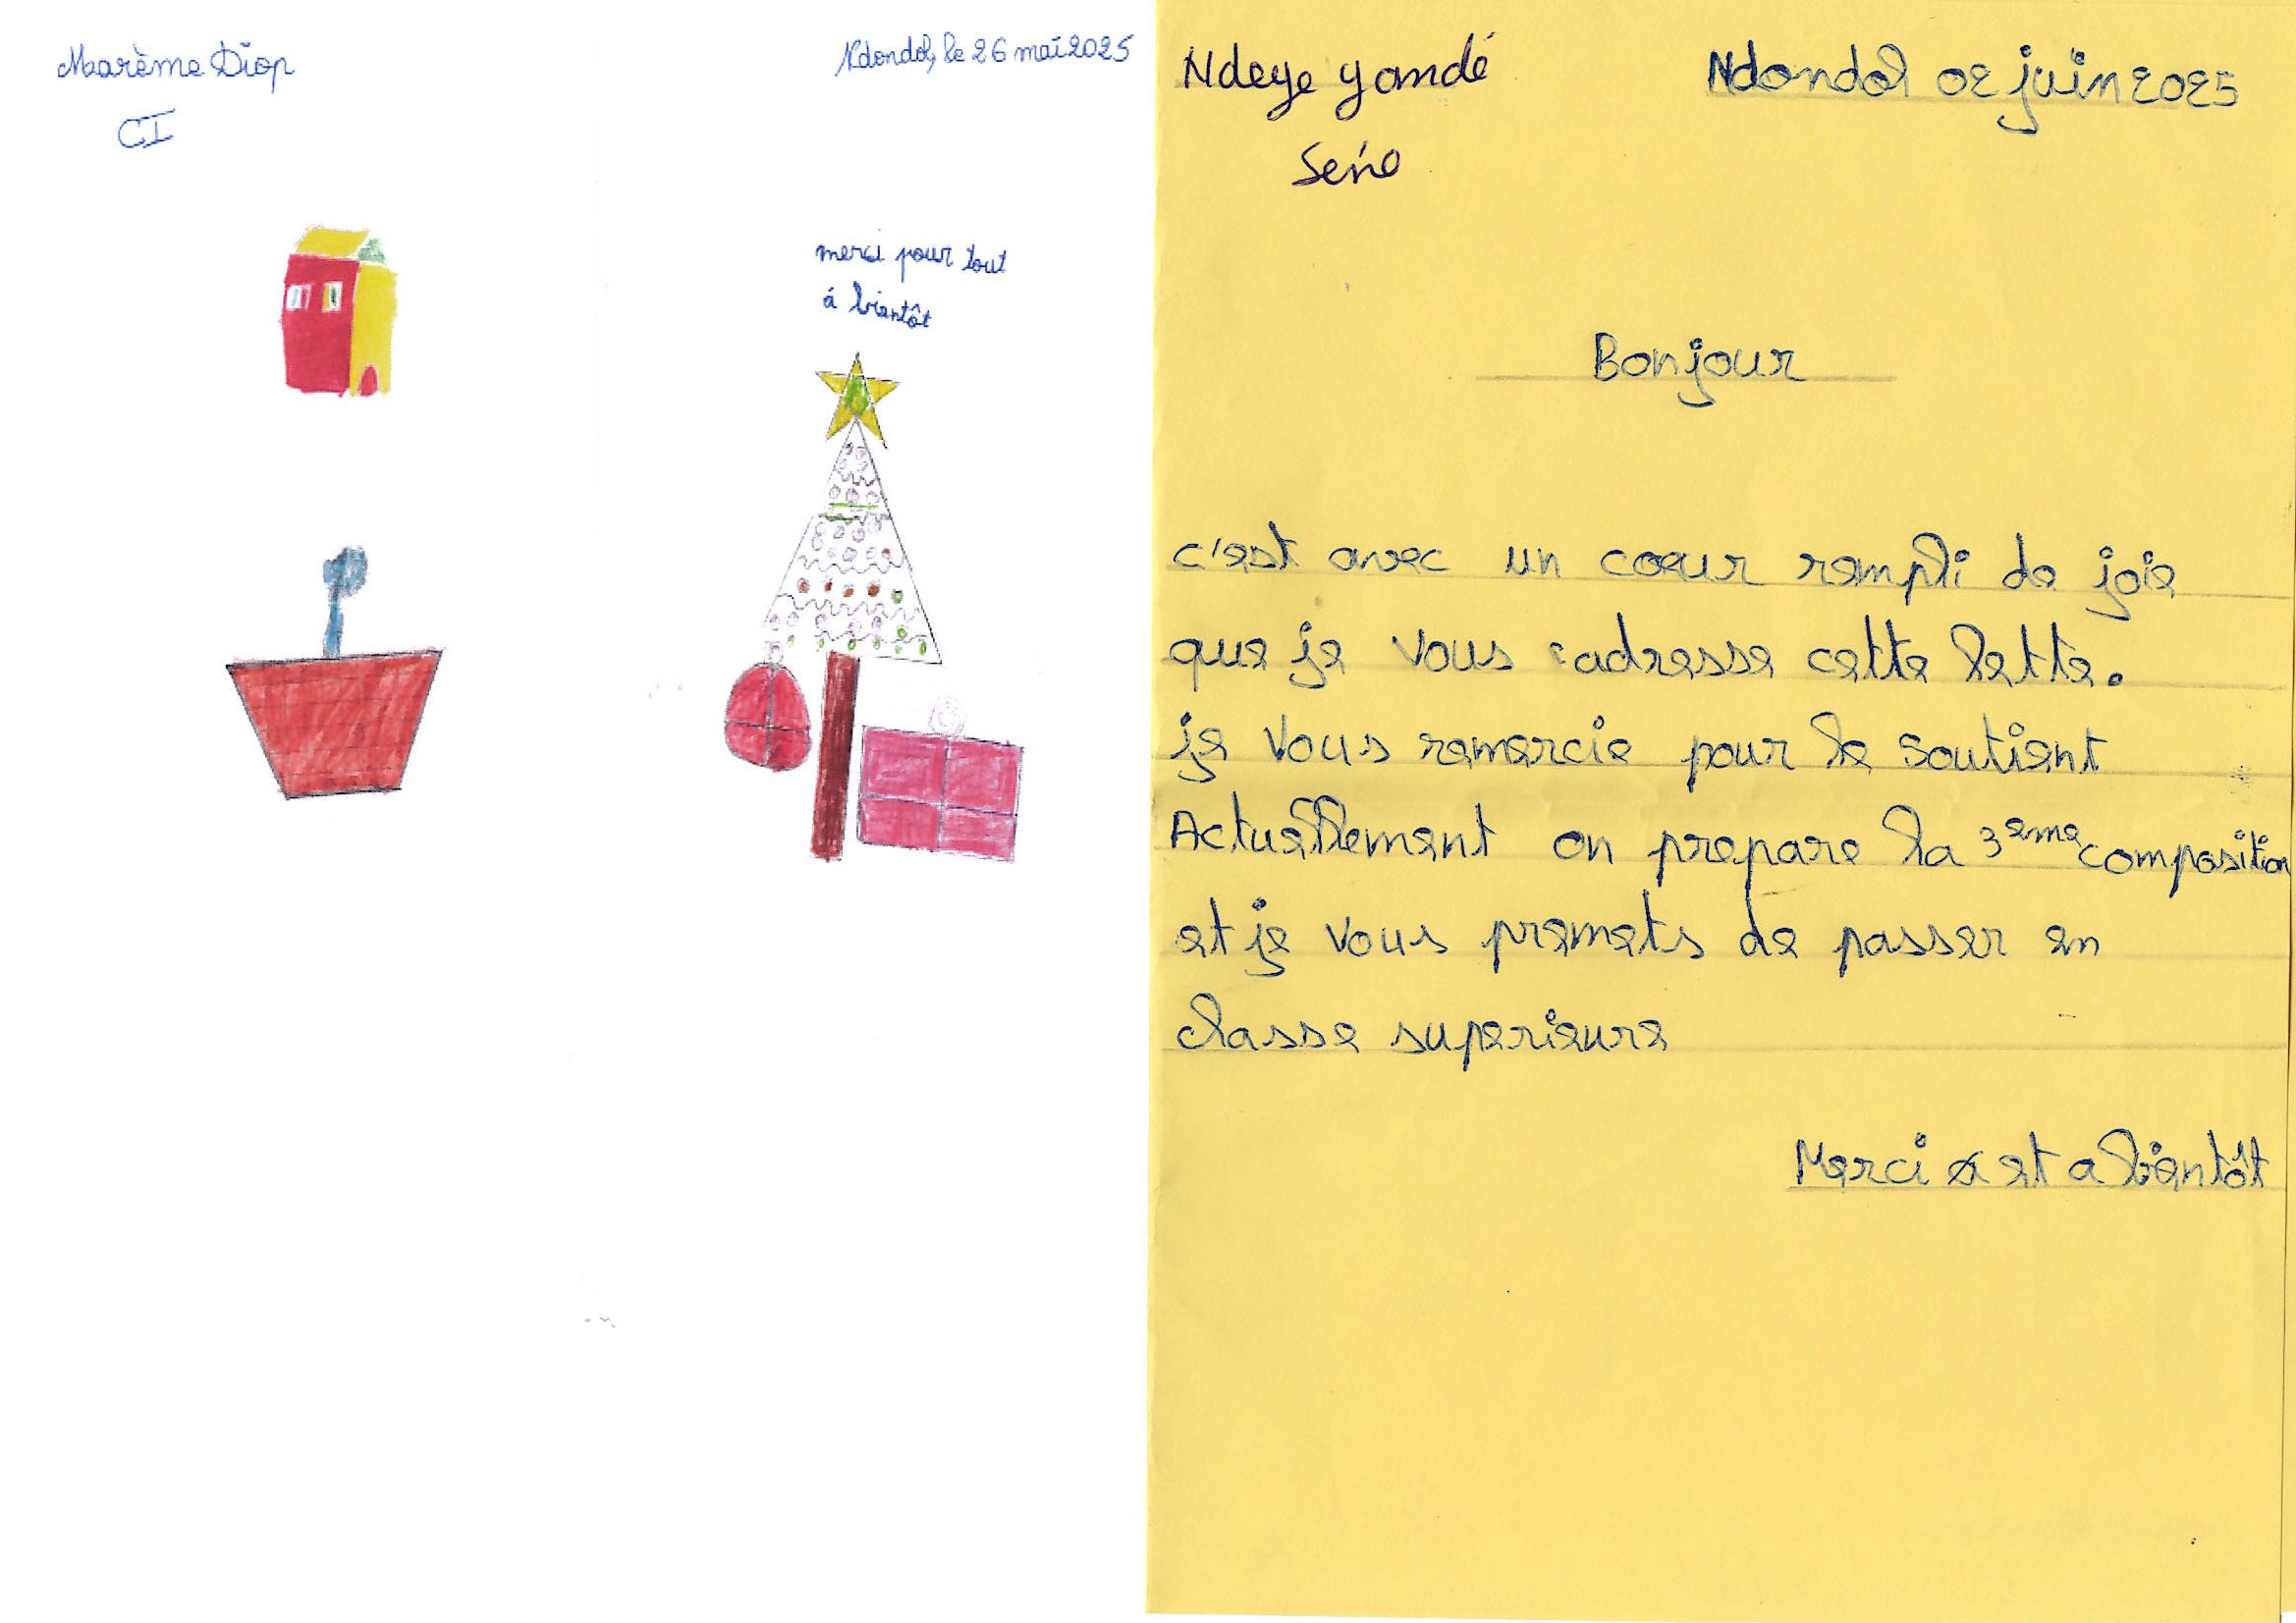 Marème Diop
CI
Ndondol, le 26 mai 2025
merci pour tout
á bientôt
Ndeye Yandé
Séne
Ndondol 02 juin 2025
Bonjour
c'est avec un cœur rempli de joie
que je vous adresse cette lette.
je vous remercie pour le soutient
Actuellement on prepare la 3eme composition
et je vous premets de passer en
classe superieure
Merci et a bientôt